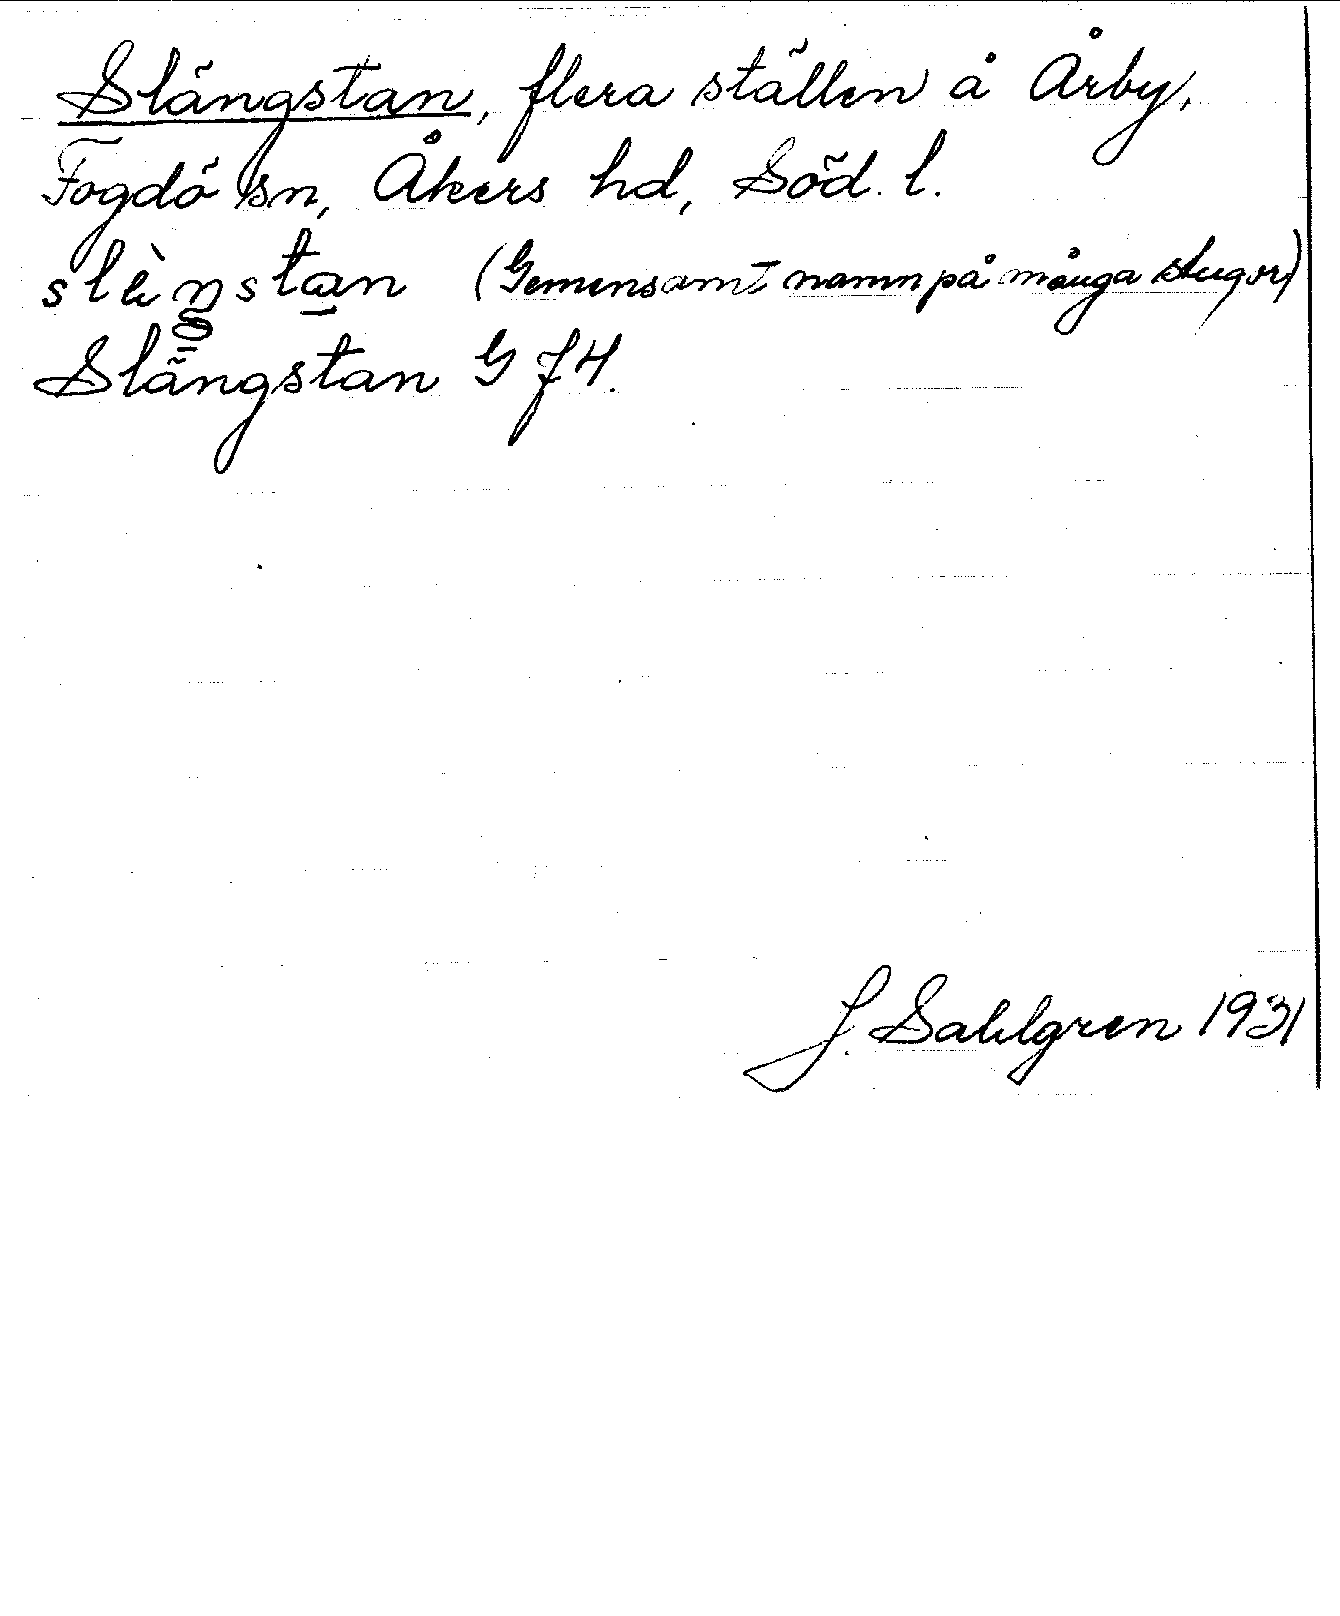 Slängstan, flera ställen å Årby,
Fogdö sn, Åkers hd, Söd. l.
slèŋstan (Gemensamt namn på många stugor)
Slängstan G f 4.
J. Sahlgren 1931